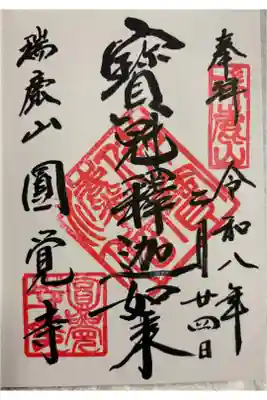 奉拝
令和八年
二月廿四日
寶冠釋迦如来
瑞鹿山 圓覚寺